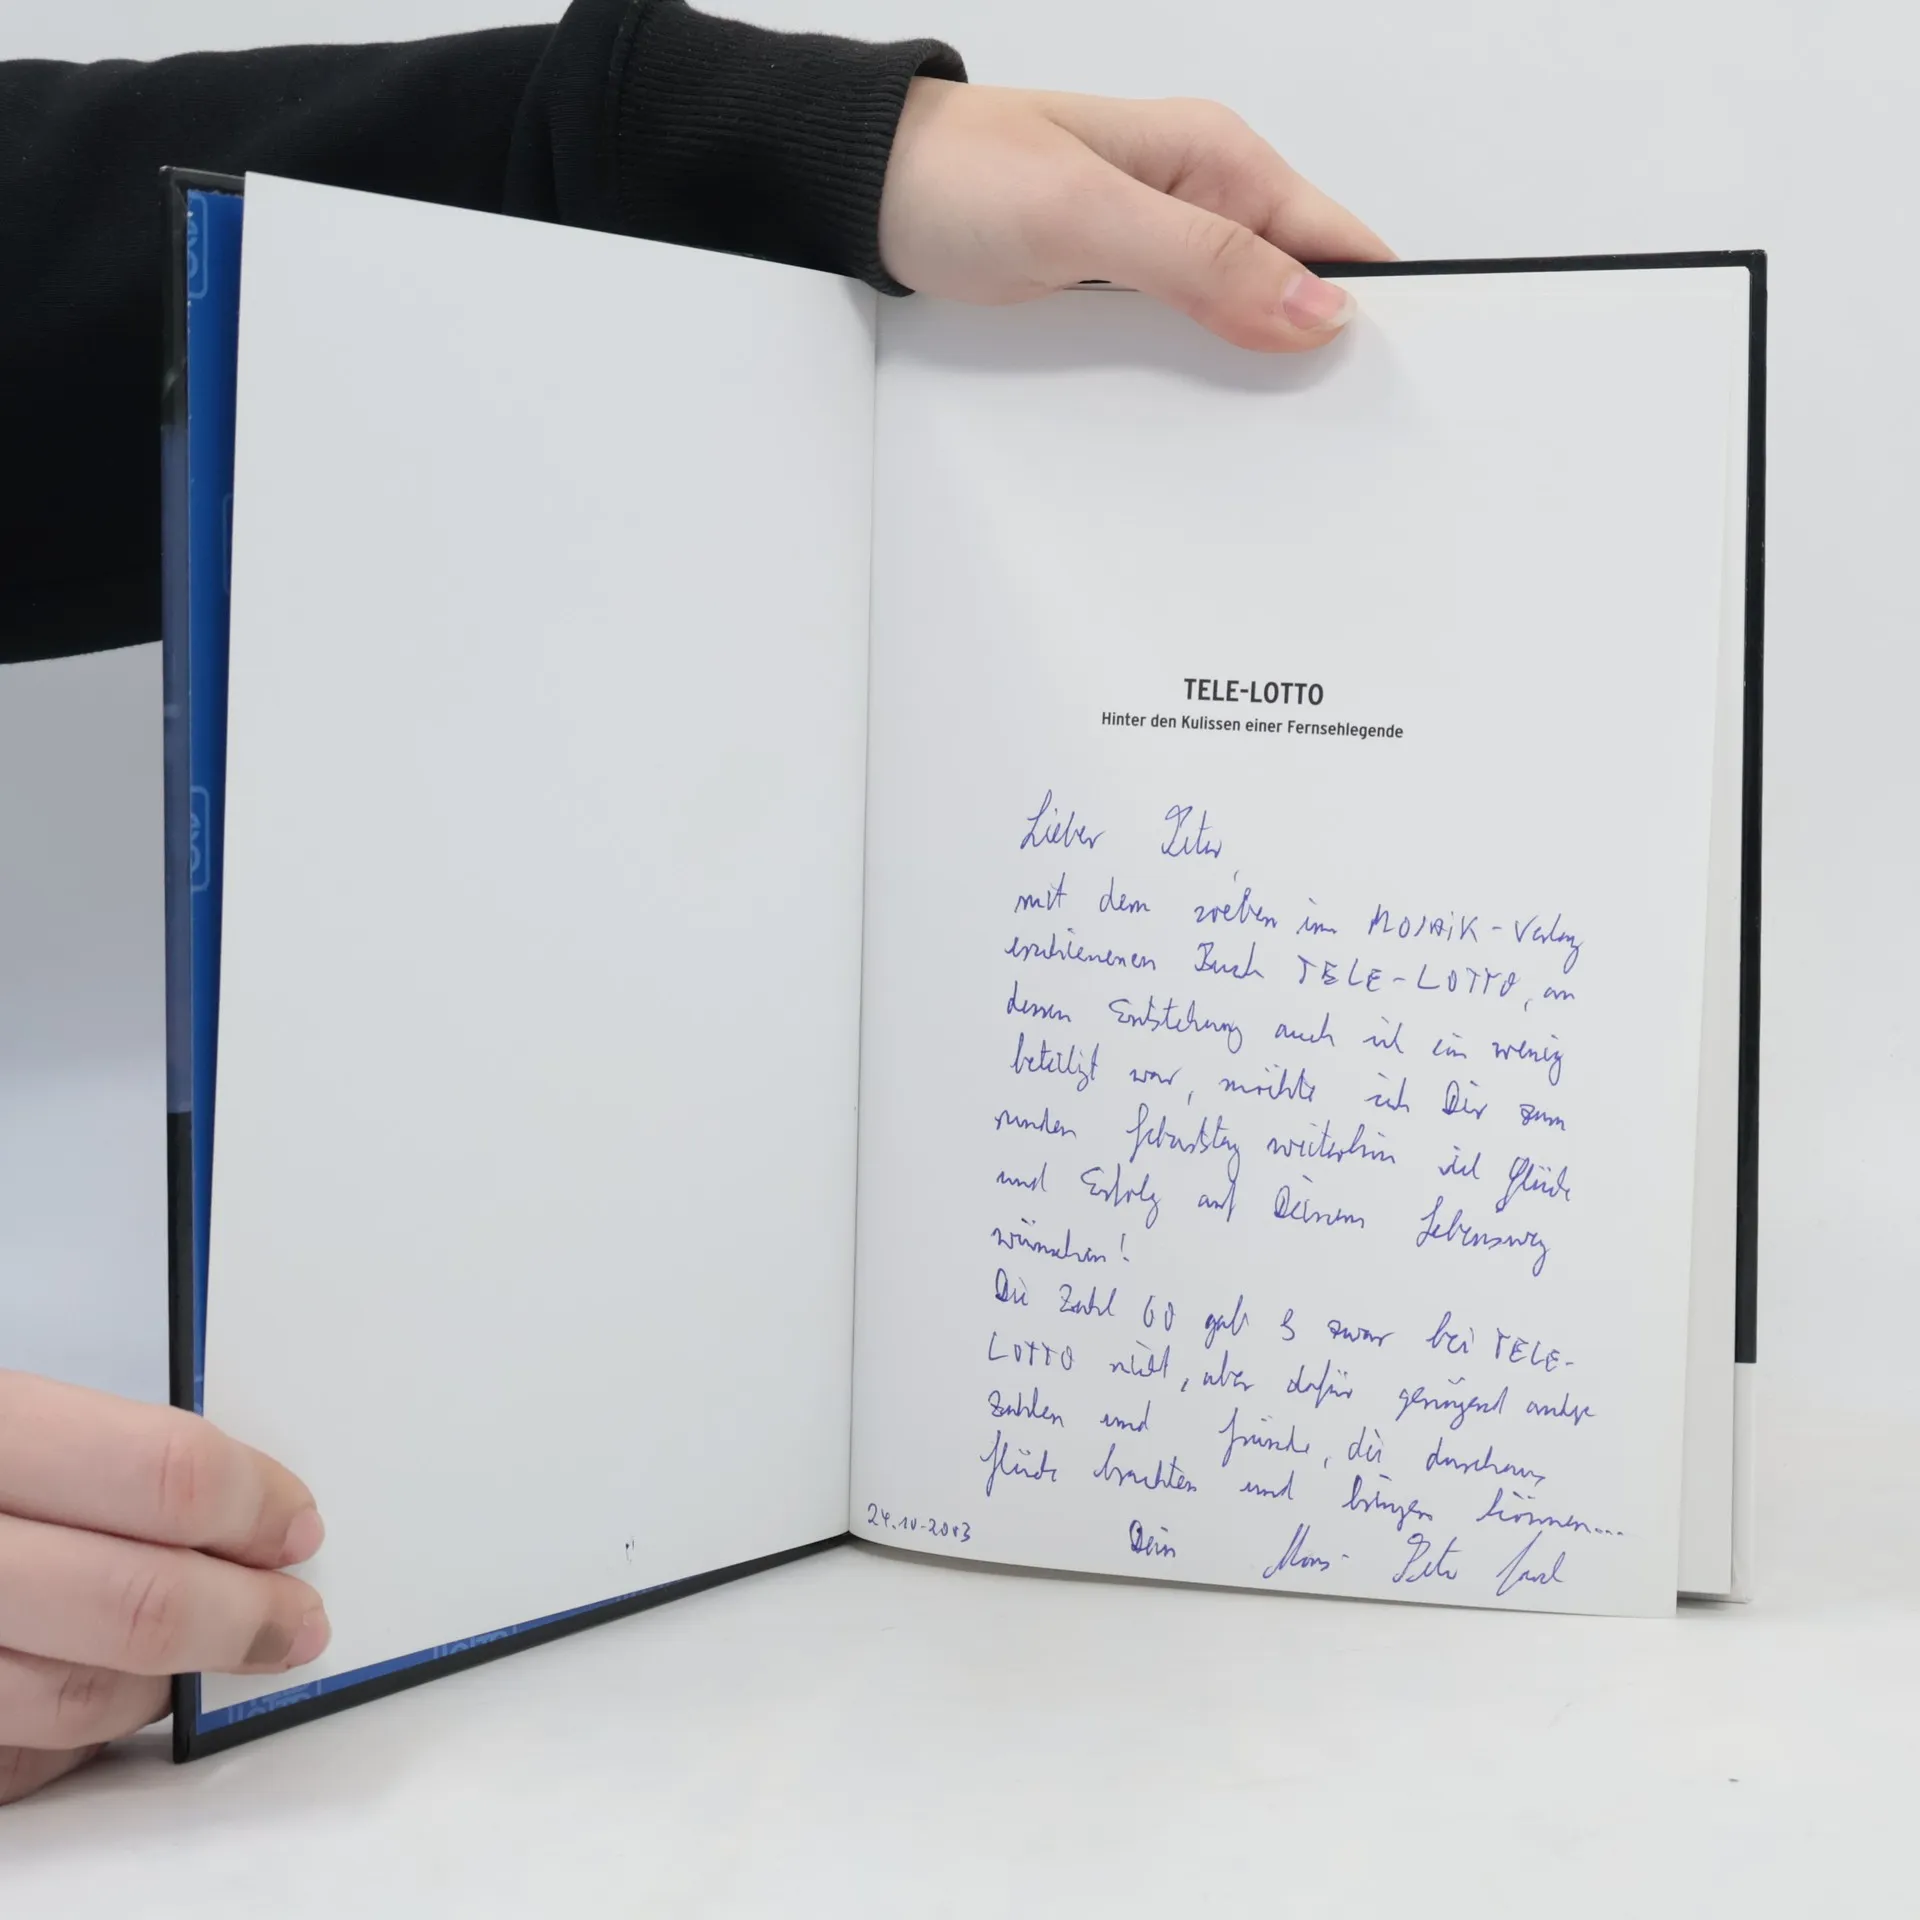 TELE-LOTTO
Hinter den Kulissen einer Fernsehlegende
Lieber Peter,
mit dem soeben im MOSAIK-Verlag
erschienenen Buch TELE-LOTTO, an
dessen Entstehung auch ich ein wenig
beteiligt war, möchte ich Dir zum
runden Geburtstag weiterhin viel Glück
und Erfolg auf Deinem Lebensweg
wünschen!
Die Zahl 60 gab es zwar bei TELE-
LOTTO nicht, aber dafür genügend andere
Zahlen und , die durchaus
Glück brachten und bringen können...
24.10.2003 Dein Hans-Peter